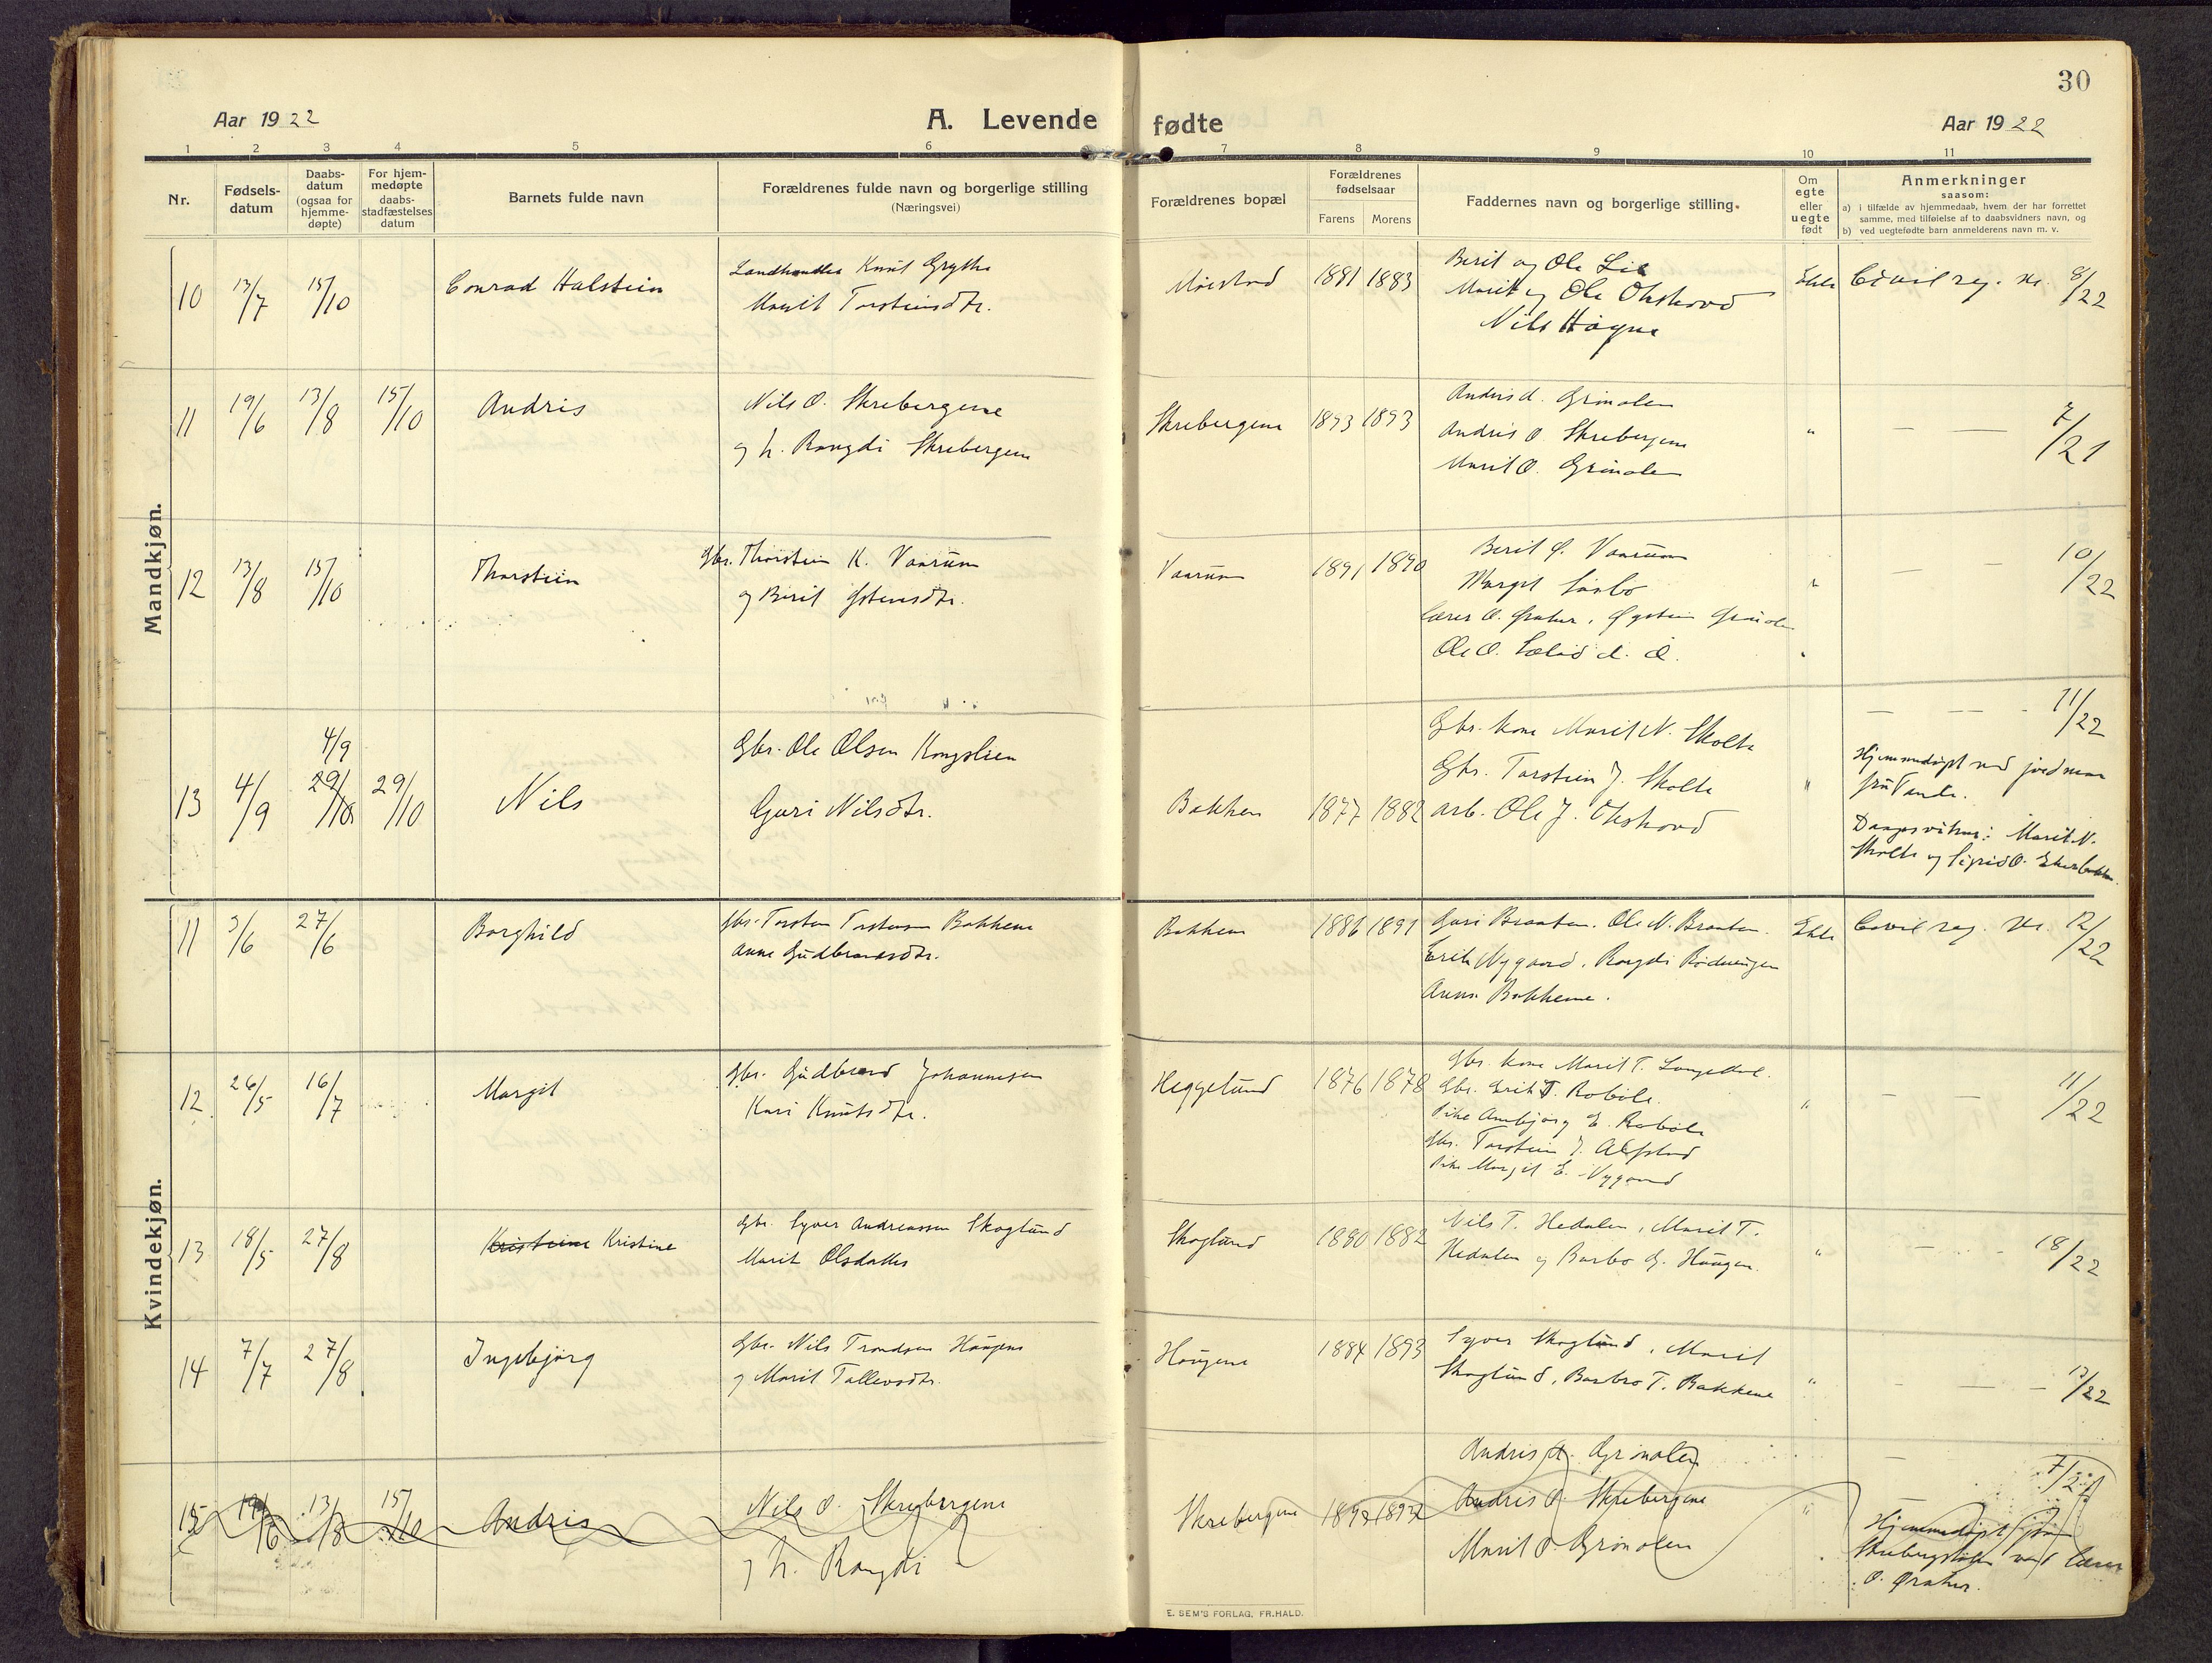 30
Aar 1922
A. Levende fødte
Aar 1922
1 2 3 4 5 6 7 8 9 10 11
Nr.
Fødsels-
datum
Daabs-
datum
(ogsaa for
hjemme-
døpte)
For hjem-
medøpte
daabs-
stadfæstelses
datum
Barnets fulde navn
Forældrenes fulde navn og borgerlige stilling
(Næringsvei)
Forældrenes bopæl
Forældrenes
fødselsaar
Farens Morens
Faddernes navn og borgerlige stilling.
Om
egte
eller
uegte
født
Anmerkninger
saasom:
a) i tilfælde av hjemmedaab, hvem der har forrettet
samme, med tilføielse af to daabsvidners navn, og
b) ved uegtefødte barn anmelderens navn m. v.
Mandkjøn.
10 13/7 15/10 Conrad Halstein
Landhandler Knut Grythe
Marit Torsteinsdtr.
1881 1883
Berit og Ole Lie
Marit og Ole Olshovd
Nils Høgne
Ekte Civil reg. nr. 8/22
11 19/6 13/8 15/10 Andris
Nils O. Skrebergene
og h. Rangdi Skrebergene
Skrebergene 1893 1893
Andris A. Grønolen
Andris O. Skrebergene
Marit O. Grønolen
" — — 7/21
12 13/8 15/10 Thorstein
Gbr. Thorstein K. Vaarum
og Berit Østensdtr.
Vaarum 1891 1890
Berit Ø. Vaarum
Margit
Lærer O.
Ole O.
" — — 10/22
13 4/9 4/9 29/10 29/10 Nils
Gbr. Ole Olsen Kongslien
Guri Nilsdtr.
Bakken 1877 1882
Gbr. kone Marit N. Skolte
Gbr. Torstein J. Skolte
arb. Ole J. Olshovd
" — — 11/22
Hjemmedøpt ved jordmor
fru
Daapsvitner: Marit N.
Skolte og Sigrid O.
Kvindekjøn.
11 3/6 27/6 Borghild
Gbr. Torsten Torstensen Bakkene
Anne Gudbrandsdtr.
Bakkene 1886 1891
Guri Braaten. Ole N. Braaten.
Erik Nygaard, Rangdi
Anna Bakkene.
Ekte Civil reg. nr. 12/22
12 26/5 16/7 Margit
Gbr. Gudbrand Johannesen
Kari Knutsdtr.
Heggelund 1876 1878
Gbr. kone Marit T.
Gbr. Erik T. Robøle.
Pike Ambjørg E. Robøle
Gbr. Torstein J. Alfstad
Pike Margit E. Nygaard
" — — 11/22
13 18/5 27/8 Kristeine Kristine
Gbr. Syver Andreassen Skoglund
Marit Olsdatter
Skoglund 1880 1882
Nils T. Hedalen, Marit T.
Hedalen og Barbo G. Haugen.
" — 18/22
14 7/7 27/8 Ingebjørg
Gbr. Nils Trondsen Haugene
og Marit Tollevsdtr.
Haugene 1884 1893
Syver Skoglund, Marit
Skoglund, Barbro T. Bakkene
" — — 13/22
15 19/6 13/8 15/10 Andris
Nils O. Skrebergene
og h. Rangdi
Skrebergene 1893 1893
Andris A. Grønolen
Andris O. Skrebergene
Marit O. Grønolen
" — 7/21
Hjemmedøpt
ved lærer
O.
E. SEM'S FORLAG, FR.HALD.